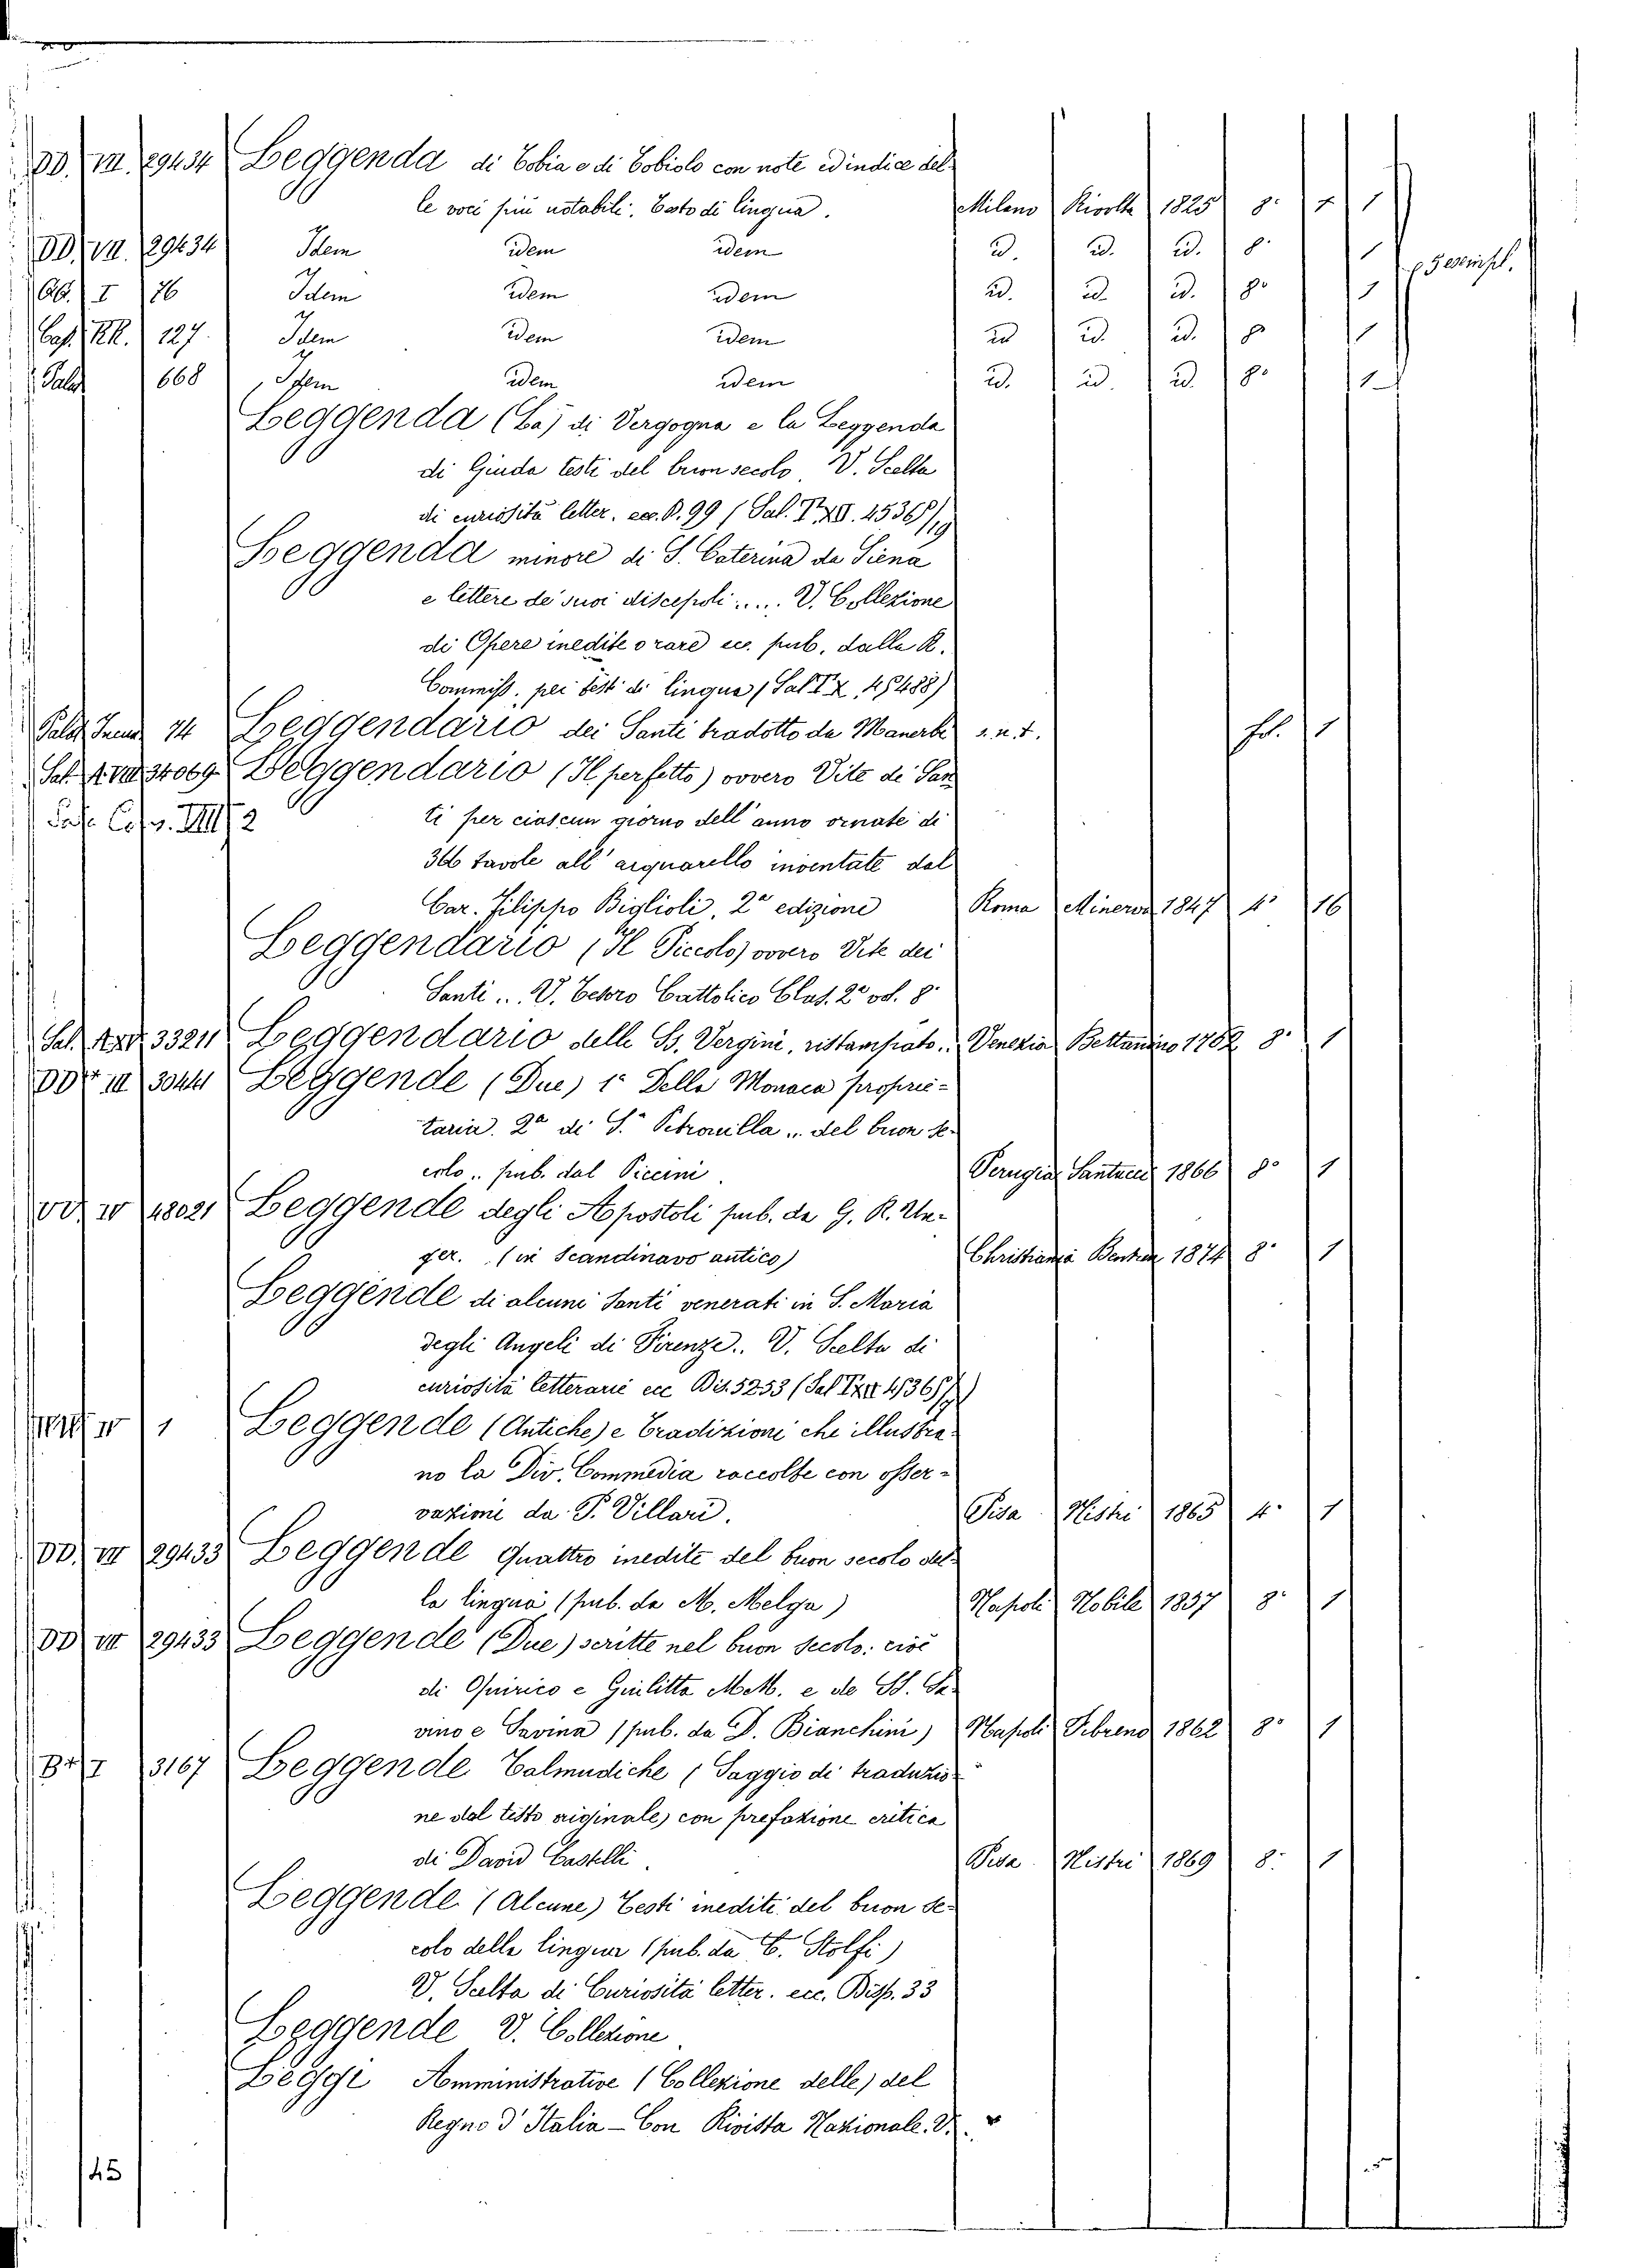 DD. VII. 29434 Leggenda di Tobia e di Tobiolo con note ed indice del-
le voci più notabili. Testo di lingua. Milano Rivolta 1825 8° 1 1
DD. VII. 29434 Idem idem idem id. id. id. 8° 1 5 esempl.
I 76 Idem idem idem id. id. id. 8° 1
Cap. RR. 127 Idem idem idem id. id. id. 8° 1
Palat 668 Idem idem idem id. id. id. 8° 1
Leggenda (La) di Vergogna e la Leggenda
di Giuda testi del buon secolo V. Scelta
di curiosità letter. ecc. D. 99 (Sal. 4536/19
Leggenda minore di S. Caterina da Siena
e lettere de' suoi discepoli .... V. Collezione
di Opere inedite o rare ecc. pub. dalla R.
Commiss. pei testi di lingua (Sal 45488)
74 Leggendario dei Santi tradotto da Manerbi s.n.t. fol. 1
Sal. 34069 Leggendario (Il perfetto) ovvero Vite di San
2 ti per ciascun giorno dell' anno ornate di
366 tavole all' acquarello inventate dal
Cav. Filippo Biglioli, 2ª edizione Roma Minerva 1847 4° 16
Leggendario (Il Piccolo) ovvero Vite dei
Santi .. V. Tesoro Cattolico Clas. 2ª vol. 8°
Sal. 33211 Leggendario delle SS. Vergini, ristampato .. Venezia Bettanino 1782 8° 1
DD III 30441 Leggende (Due) 1ª Della Monaca proprie-
taria. 2ª di S.ª Petronilla .. del buon se-
colo .. pub. dal Piccini Perugia Santucci 1866 8° 1
IV 48021 Leggende degli Apostoli pub. da G. R. Un-
ger. (in Scandinavo antico) Christiania Bentzen 1874 8° 1
Leggende di alcuni Santi venerati in S. Maria
degli Angeli di Firenze.. V. Scelta di
curiosità letterarie ecc Dis. 5253 (Sal
IV 1 Leggende (Antiche) e Tradizioni che illustra-
no la Div. Commedia raccolte con osser-
vazioni da P. Villari. Pisa Nistri 1865 4° 1
DD. VII 29433 Leggende Quattro inedite del buon secolo del-
la lingua (pub. da M. Melga) Napoli Nobile 1857 8° 1
DD VII 29433 Leggende (Due) scritte nel buon secolo: cioè
di Quirico e Giulitta MM. e de SS. Sa-
vino e Savina (pub. da D. Bianchini) Napoli Fibreno 1862 8° 1
I 3167 Leggende Talmudiche (Saggio di traduzio-
ne dal testo originale) con prefazione critica
di David Castelli Pisa Nistri 1869 8° 1
Leggende (Alcune) Testi inediti del buon se-
colo della lingua (pub. da C. Stolfi)
V. Scelta di Curiosità letter. ecc. Disp. 33
Leggende V. Collezione
Leggi Amministrative (Collezione delle) del
Regno d' Italia - Con Rivista Nazionale. V.
45